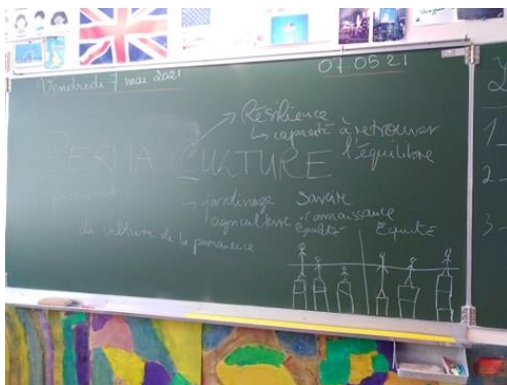 Vendredi 7 mai 2021
07.05.21
→ Résilience
↳ capacité à retrouver
l'équilibre
PERMA CULTURE
permanent
↳ jardinage savoir
agriculture connaissance
la culture de la permanence
Égalité Equité
1_
2_
3_